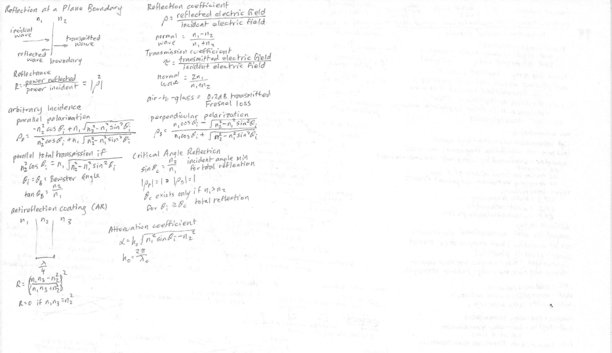 Reflection at a Plane Boundary
n₁ n₂
incident wave
transmitted wave
reflected wave
boundary
Reflectance
R = power reflected / power incident = |ρ|²
arbitrary Incidence
parallel polarization
ρₚ = (-n₂² cos θᵢ + n₁ √(n₂² - n₁² sin² θᵢ)) / (n₂² cos θᵢ + n₁ √(n₂² - n₁² sin² θᵢ))
parallel total transmission if
n₂² cos θᵢ = n₁ √(n₂² - n₁² sin² θᵢ)
θᵢ = θ_B = Bewster Angle
tan θ_B = n₂/n₁
Antireflection Coating (AR)
n₁ n₂ n₃
λ/4
R = ((n₁n₃ - n₂²) / (n₁n₃ + n₂²))²
R=0 if n₁n₃ = n₂²
Reflection coefficient
ρ = reflected electric field / incident electric field
normal wave = (n₁ - n₂) / (n₁ + n₂)
Transmission coefficient
τ = transmitted electric field / incident electric field
normal wave = 2n₁ / (n₁ + n₂)
air-to-glass = 0.2dB transmitted
Fresnel loss
perpendicular polarization
ρₛ = (n₁ cos θᵢ - √(n₂² - n₁² sin² θᵢ)) / (n₁ cos θᵢ + √(n₂² - n₁² sin² θᵢ))
Critical Angle Reflection
sin θc = n₂/n₁ incident angle min for total reflection
|ρₚ| = 1 & |ρₛ| = 1
θc exists only if n₁ > n₂
for θᵢ ≥ θc total reflection
Attenuation coefficient
α = k₀ √(n₁² sin θᵢ - n₂²)
k₀ = 2π/λ₀